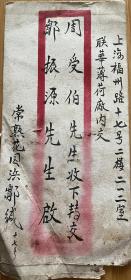 上海福州路十七号二楼二一二室
联华薄荷厰内交
周受伯先生收下转交
邹振源先生启
常熟花园浜邹缄